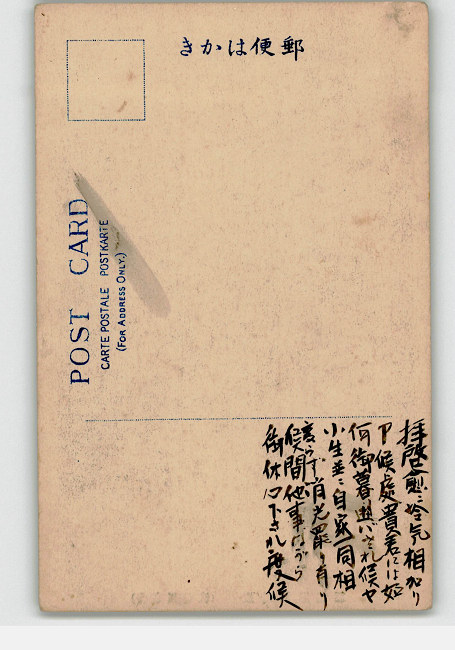 郵便はかき
POST CARD
CARTE POSTALE POSTKARTE
(FOR ADDRESS ONLY.)
拝啓愈々冷気相加り
申候處貴君には如
何御暮遊ばされ候や
小生並ニ自家一同相
変らず消光罷り有り
候間他事ながら
御休心下され度候